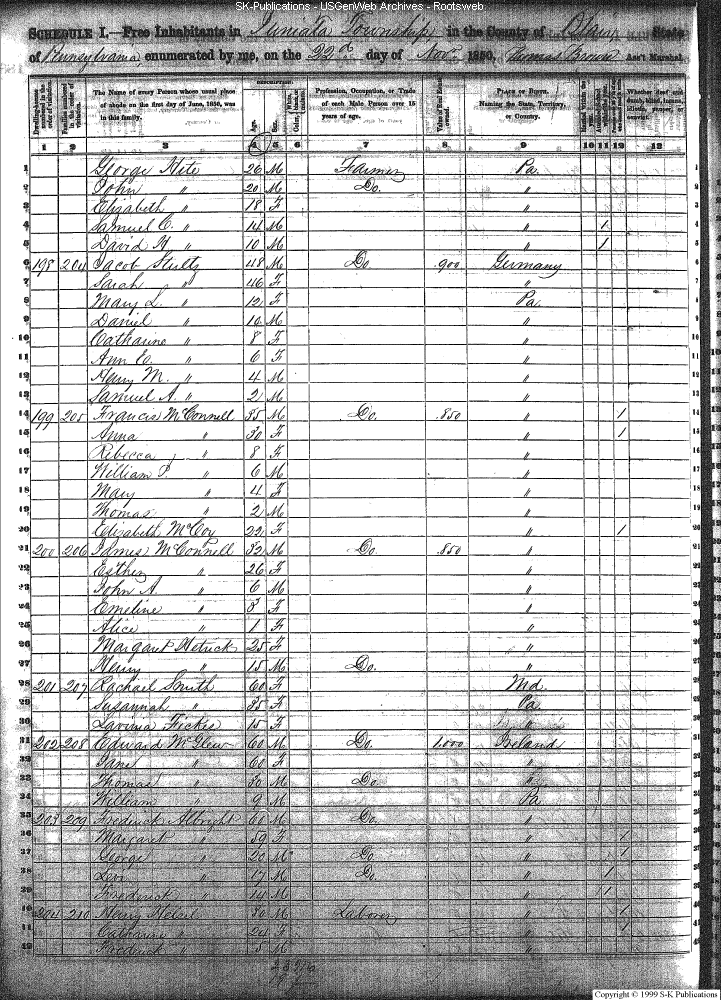 SK-Publications - USGenWeb Archives - Rootsweb
SCHEDULE I.—Free Inhabitants in Juniata Township in the County of Blair State
of Pennsylvania enumerated by me, on the 22d day of Nov. 1850, Thomas Brown Ass't Marshal.
The Name of every Person whose usual place of abode on the first day of June, 1850, was in this family.
DESCRIPTION.
Age.
Sex.
Profession, Occupation, or Trade of each Male Person over 15 years of age.
Place of Birth. Naming the State, Territory, or Country.
1 2 3 4 5 6 7 8 9 10 11 12 13
1 George Hite 26 M Farmer Pa.
2 John " 20 M Do. "
3 Elizabeth " 18 F "
4 Samuel C. " 14 M " 1
5 David " 10 M " 1
6 198 204 Jacob Stultz 48 M Do 900 Germany
7 Sarah " 46 F "
8 Mary L. " 12 F Pa
9 Daniel " 10 M "
10 Catharine " 8 F "
11 Ann E. " 6 F "
12 M. " 4 M "
13 Samuel A. " 2 M "
14 199 205 Francis McConnell 35 M Do. 850 " 1
15 Anna " 30 F " 1
16 Rebecca " 8 F "
17 William P. " 6 M "
18 Mary " 4 F "
19 Thomas " 2 M "
20 Elizabeth McCoy 22 F " 1
21 200 206 James McConnell 32 M Do. 850 "
22 Esther " 26 F "
23 John A. " 6 M "
24 Emeline " 3 F "
25 Alice " 1 F "
26 Margaret Hetrick 25 F "
27 Henry " 15 M Do. "
28 201 207 Rachael Smith 60 F Md.
29 Susannah " 35 F Pa
30 Lavina Fickes 15 F "
31 202 208 Edward McGlew 60 M Do. 1,000 Ireland
32 Jane " 60 F "
33 Thomas " 30 M Do. "
34 William " 9 M Pa
35 203 209 Frederick Albright 60 M Do. "
36 Margaret " 59 F " 1
37 George " 20 M Do. " 1
38 Levi " 17 M Do. " 1
39 Frederick " 14 M " 1 1
40 204 210 Henry 30 M Laborer " 1
41 Catharine " 24 F " 1
42 Frederick " 5 M "
Copyright © 1999 S-K Publications